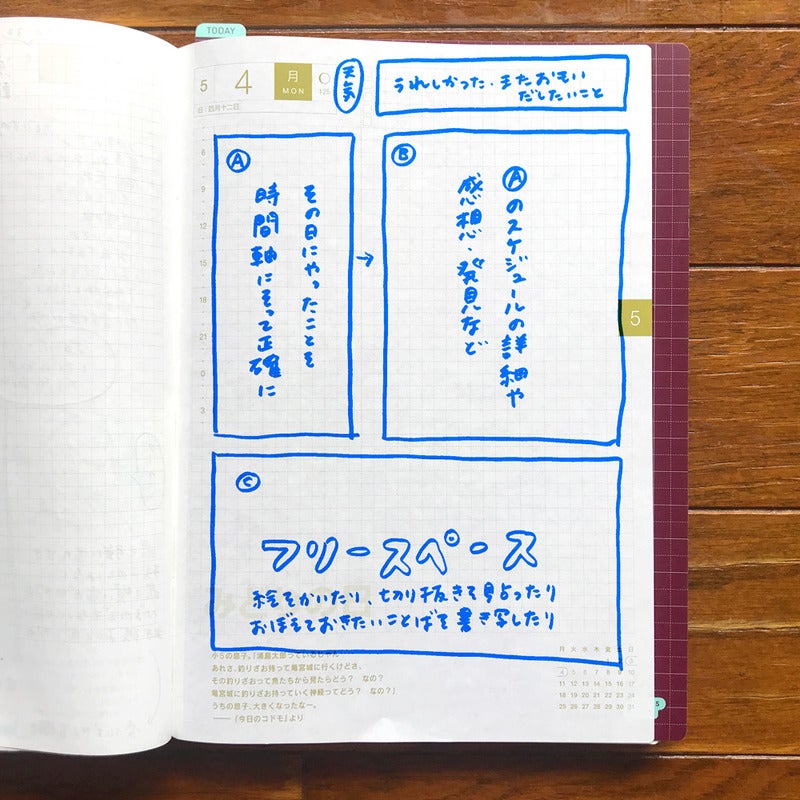 TODAY
5 4 月 MON
旧:四月十二日
125
天気
うれしかった・またおもい
だしたいこと
6
9
12
15
18
21
0
3
Ⓐ
その日にやったことを
時間軸にそって正確に
→
Ⓑ
Ⓐのスケジュールの詳細や
感想・発見など
5
Ⓒ
フリースペース
絵をかいたり、切り抜きを貼ったり
おぼえておきたいことばを書き写したり
小5の息子。「浦島太郎っているじゃん
あれさ、釣りざお持って竜宮城に行くけどさ、
その釣りざおって魚たちから見たらどう? なの?
竜宮城に釣りざお持っていく神経ってどう? なの?」
うちの息子、大きくなったなー。
──『今日のコドモ』より
月 火 水 木 金 土 日
1 2 3
4 5 6 7 8 9 10
11 12 13 14 15 16 17
18 19 20 21 22 23 24
25 26 27 28 29 30 31
5